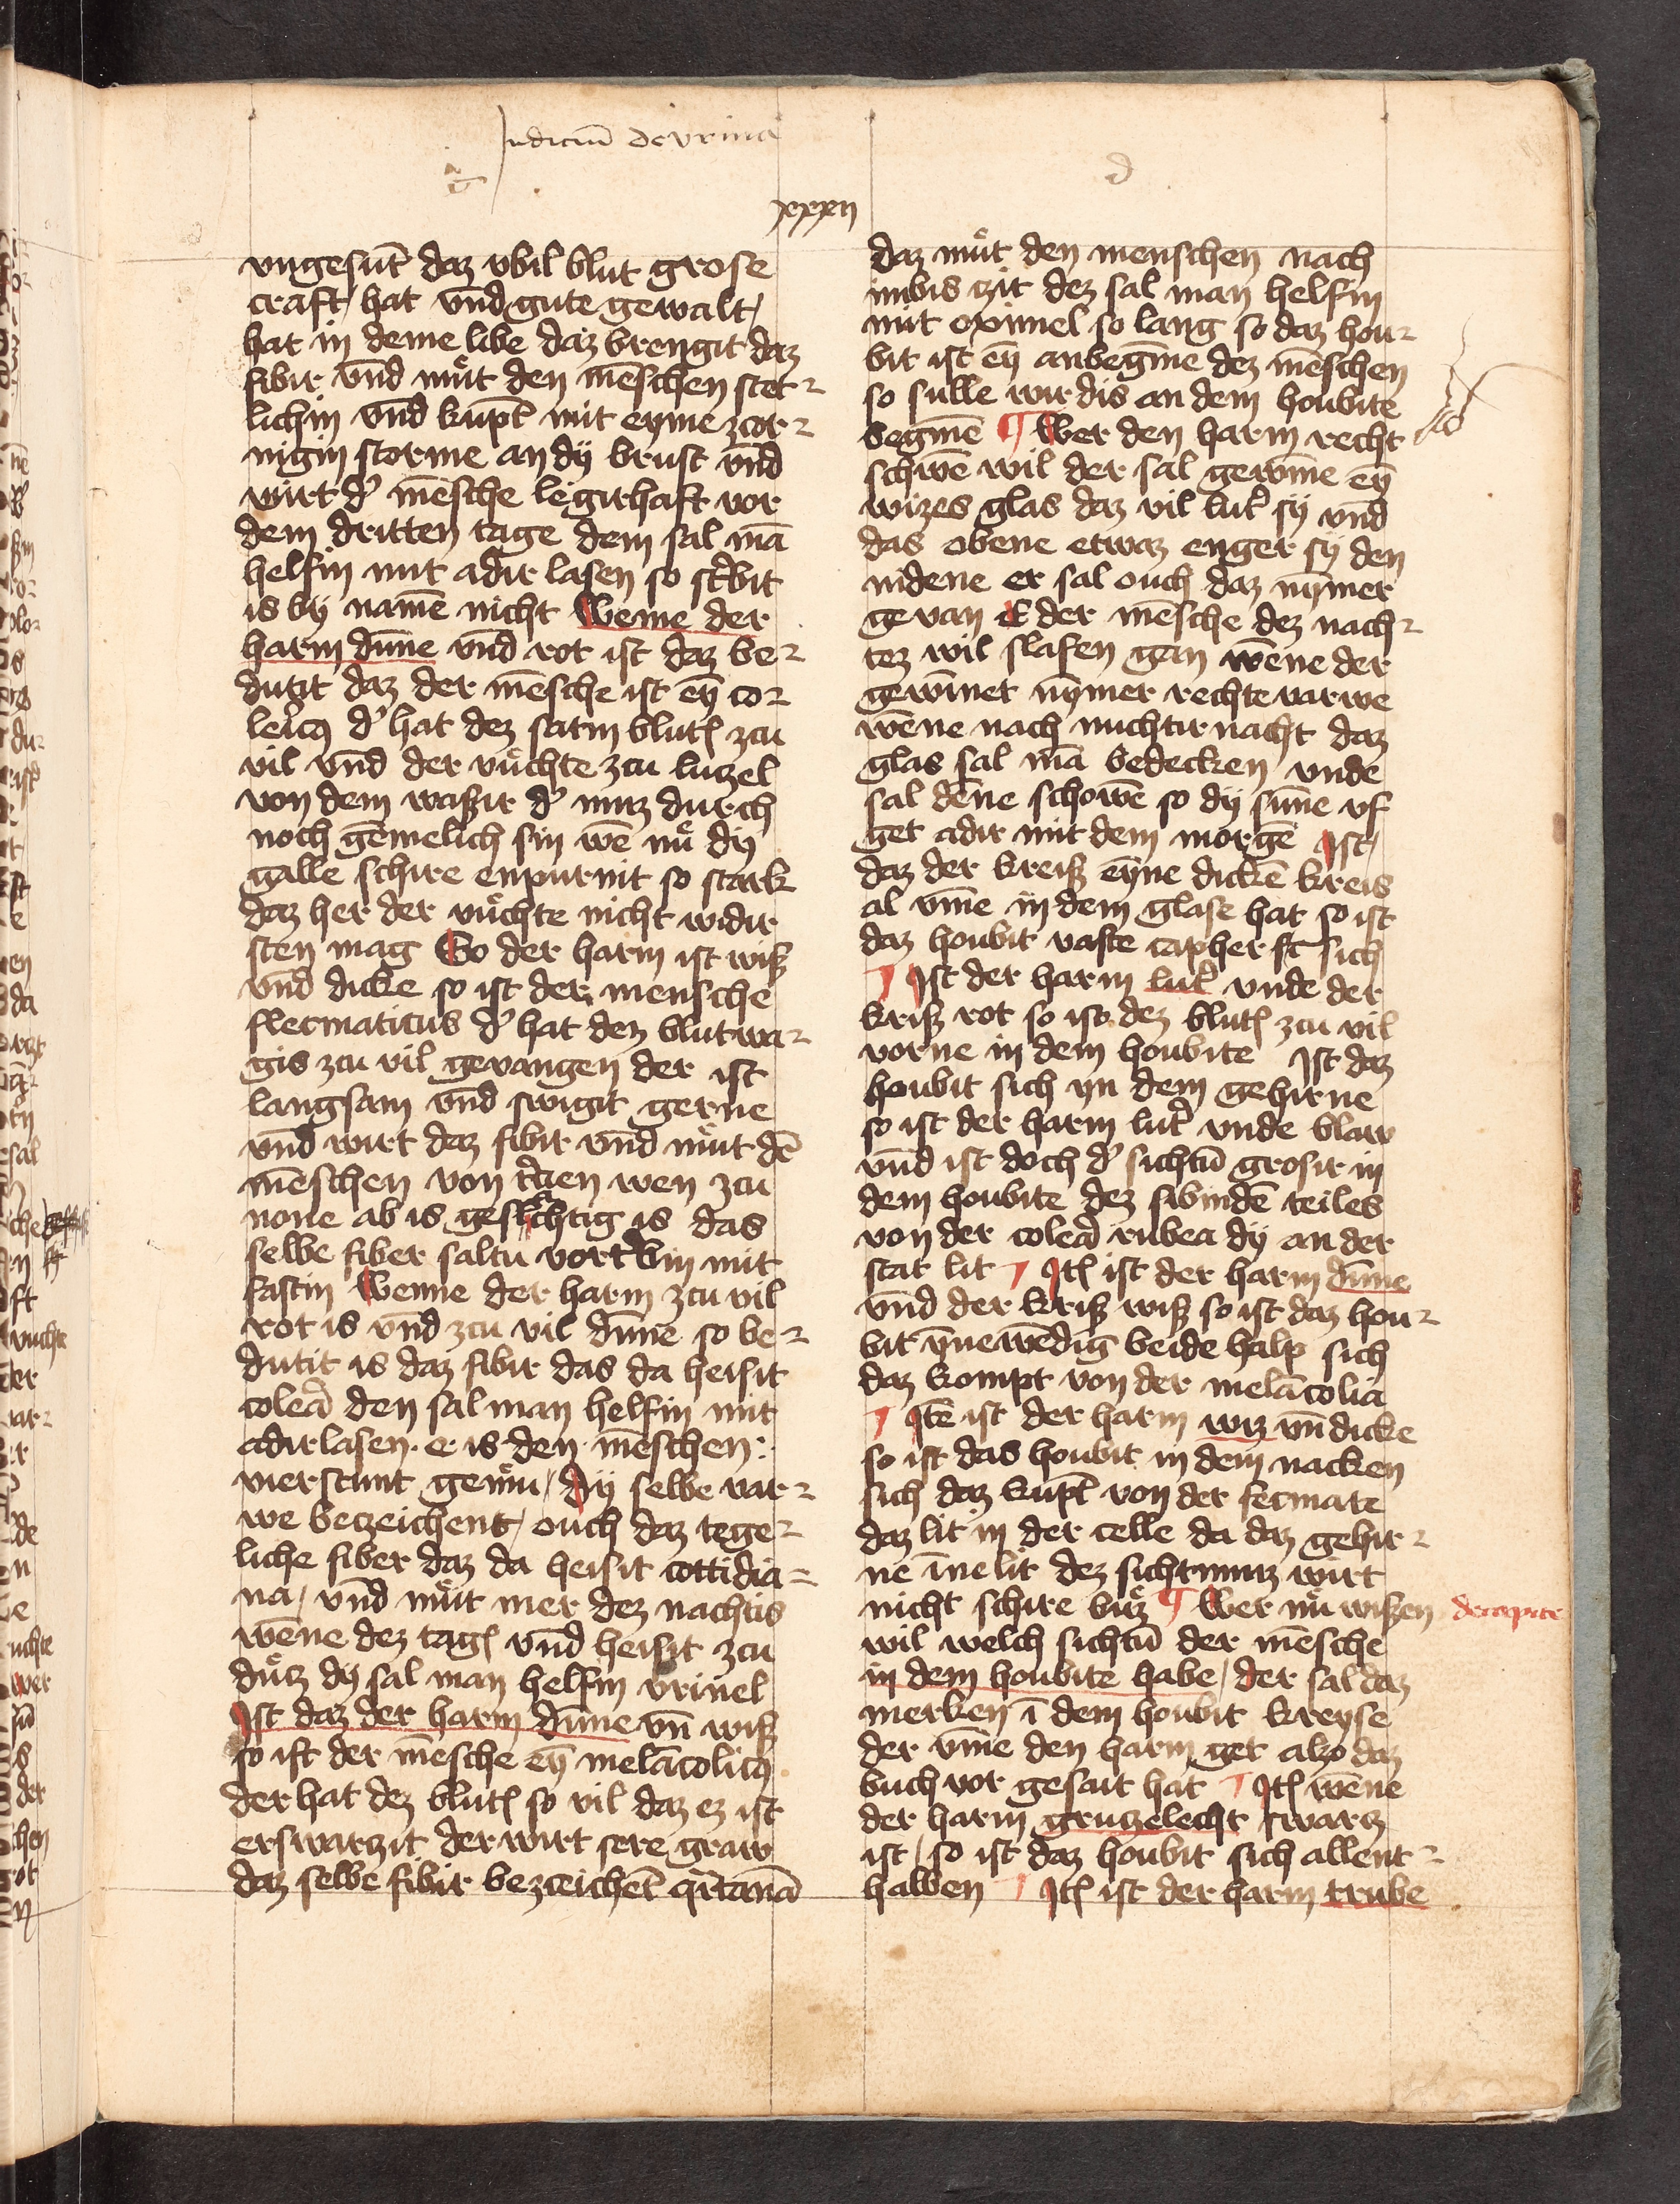 Judiciū de vrina
c
d
xxxxii
vngesūt daz vbil blut grose
craft hat vnd gute gewalt
hat in deme libe daz brengit daz
fibir vnd muͤt den mēschen stet-
lichin vnd kupt mit eyme zcor-
nigin storme an dy brust vnd
wirt d' mēsche legirhaft vor
dem dritten tage dem sal mā
helfin mit adir lasen so st'bit
is by namē nicht Weme der
harm dūne vnd rot ist daz be-
dutit daz der mēsche ist ey co-
leric9 d' hat dez satin blutz zcu
vil vnd der vuͤchte zcu lutzel
von dem wassir d' muz durch
noch gemelich sin wē nuͤ dy
galle schire enpurnit so stark
daz her der vuͤchte nicht widir
sten mag So der harm ist wiß
vnd dicke so ist der mensche
flecmaticus d' hat dez blutwa-
gis zcu vil gevangen der ist
langsam vnd swigit gerne
vnd wirt daz fibir vnd muͤt dē
mēschen von t'cien wen zcu
none ab is geslachtig is das
selbe fiber saltu vort'bin mit
fastin Wenne der harm zcu vil
rot is vnd zcu vil dūne so be-
dutit is daz fibir das da heisit
colera den sal man helfin mit
adirlasen e is den mēschen
vierstunt gemuͤ dy selbe var-
we betzeichent ouch daz tege-
liche fiber daz da heisit cottidia-
na vnd muͤt mer dez nachtis
wēne dez tagz vnd heisit zcu
duͤtz dy sal man helfin vrinel
Jst daz der harm dūne vn wiß
so ist der mēsche ey melācolic9
der hat dez blutz so vil daz ez ist
erswartzit der wirt sere graw
daz selbe fibir bezceichet q'rtanā
daz muͤt den menschen nach
imbis zit dez sal man helfin
mit oximel so lang so daz hou-
bit ist ey anbegīne dez mēschen
so sulle wir dis an dem houbite
begīnē Wer den harm recht
schowē wil der sal gewīne ey
wizes glas daz vil lut' sy vnd
das obene etwaz enger sy den
nidene er sal ouch daz nymer
gevan E der mēsche dez nach-
tez wil slafen gan wēne der
gewīnet nymer rechte varwe
wēne nach nuchtir nacht daz
glas sal mā bedecken vnde
sal dēne schowē so dy sūne vf
get adir mit dem morgē Jst
daz der kreiß eyne dickē kreis
al vme in dem glase hat so ist
daz houbit vaste sich
Jst der harm lut' vnde der
kriß rot so ist dez blutz zcu vil
vorne in dem houbite Jst daz
houbit sich yn dem gehirne
so ist der harm lut' vnde blaw
vnd ist doch d' sichtū grosir in
dem houbite dez sibindē teiles
von der colera rubea dy an der
stat lit Jtz ist der harm dūne
vnd der kriß wiß so ist daz hou-
bit ynewēdig beide halp sich
daz kompt von der melācolia
Jtē ist der harm wiz vn dicke
so ist das houbit in dem nacken
sich daz kupt von der fecmate
daz lit in der celle da daz gehir-
ne īne lit dez sichtumz wirt
nicht schire buͤz Wer nuͤ wißen
de capite
wil welch sichtū der mēsche
in dem houbite habe der sal daz
merken ī dem houbit kreyse
der vme den harm get alzo daz
buch vor gesait hat Jtz wēne
der harm grutzelecht swartz
ist so ist daz houbit sich allent-
halben Jtz ist der harm trube